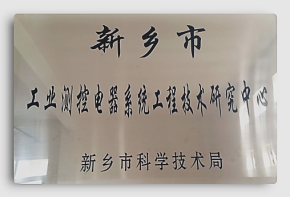 新乡市
工业测控电器系统工程技术研究中心
新乡市科学技术局